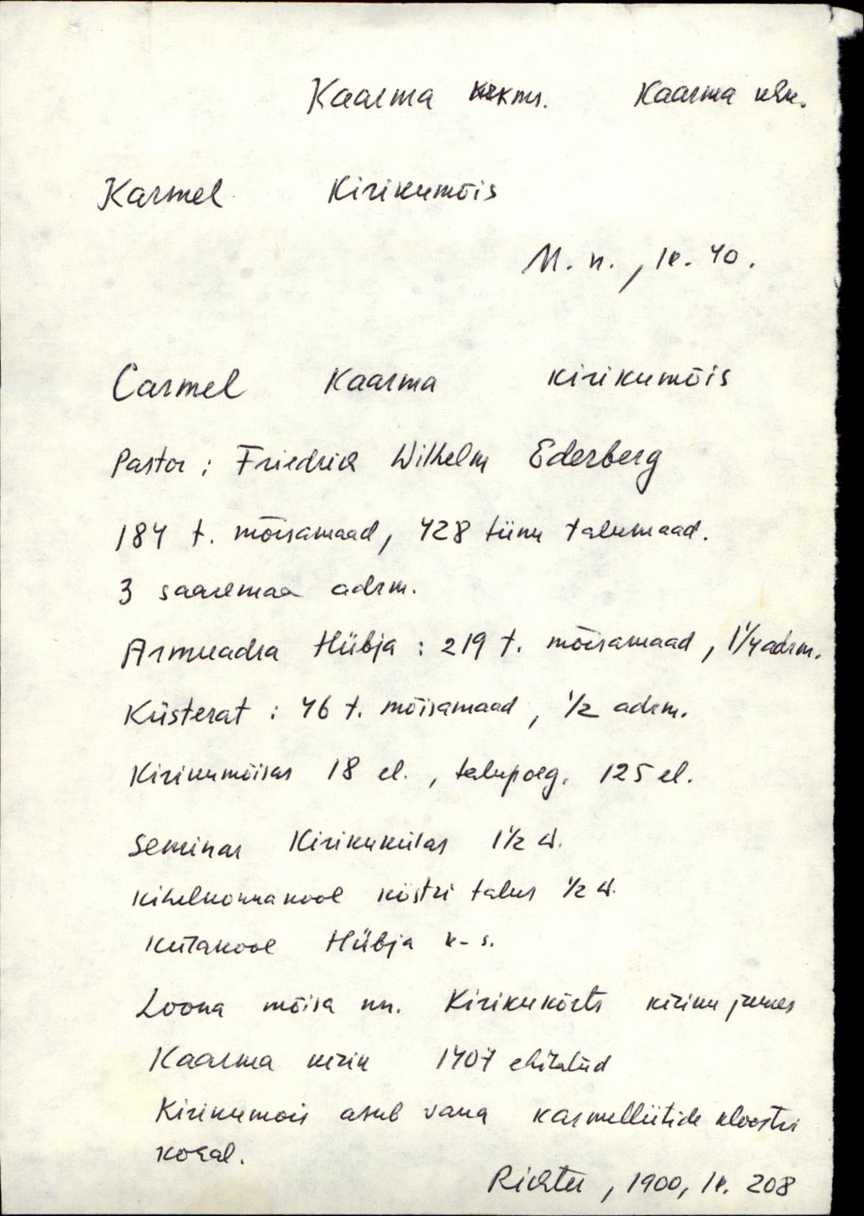 Kaarma krkms. Kaarma khk.
Karmel Kirikumõis
M. n., lk. 40.
Carmel Kaarma kirikumõis
Pastor: Friedrich Wilhelm Ederberg
184 t. mõisamaad, 428 tiinu talumaad.
3 saaremaa adrm.
Armuadra Hübja: 219 t. mõisamaad, 1 1/4 adrm.
Küsterat: 46 t. mõisamaad, 1/2 adrm.
Kirikumõisas 18 el., talupoeg. 125 el.
Seminar Kirikukülas 1 1/2
Kihelkonnakool köstri talus 1/2
Külakool Hübja k-s.
Loona mõisa nn. Kirikukõrts kiriku juures
Kaarma kirik 1407 ehitatud
Kirikumõis asub vana karmelliitide kloostri
kohal.
Richter, 1900, lk. 208